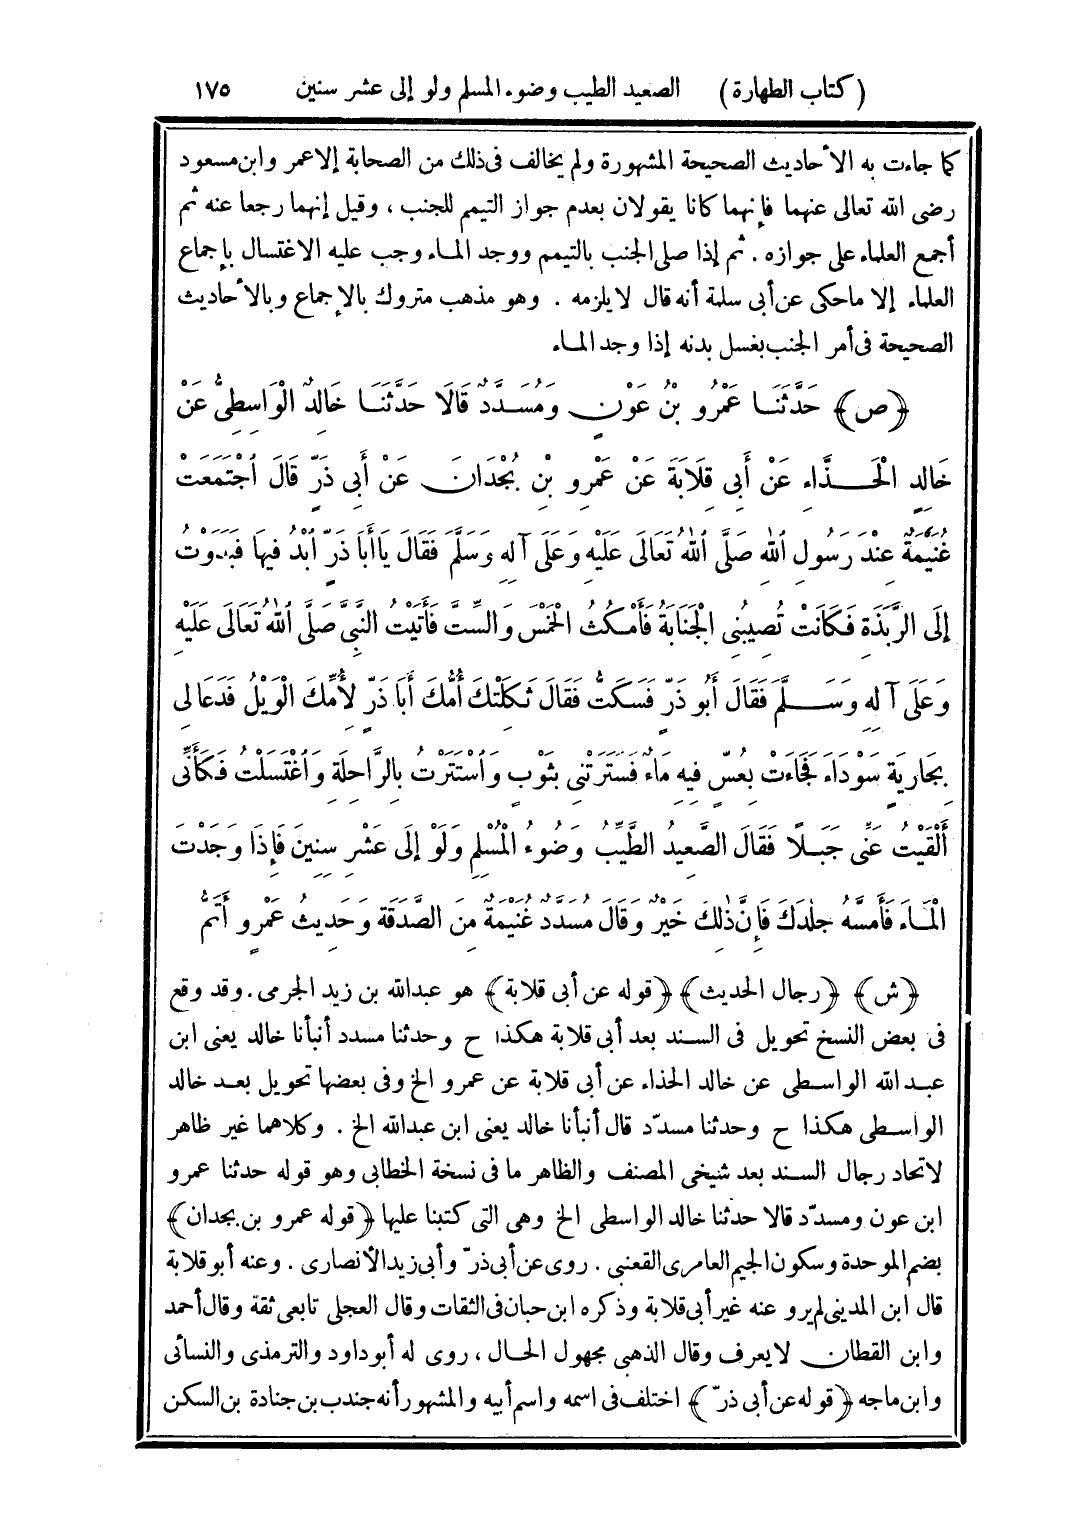 (كتاب الطهارة) الصعيد الطيب وضوء المسلم ولو إلى عشر سنين ١٧٥
كما جاءت به الأحاديث الصحيحة المشهورة ولم يخالف فى ذلك من الصحابة إلا عمر وابن مسعود
رضى الله تعالى عنهما فإنهما كانا يقولان بعدم جواز التيمم للجنب، وقيل إنهما رجعا عنه ثم
أجمع العلماء على جوازه. ثم إذا صلى الجنب بالتيمم ووجد الماء وجب عليه الاغتسال بإجماع
العلماء إلا ماحكى عن أبى سلمة أنه قال لا يلزمه. وهو مذهب متروك بالإجماع وبالأحاديث
الصحيحة فى أمر الجنب بغسل بدنه إذا وجد الماء
﴿ص﴾ حَدَّثَنَا عَمْرُو بْنُ عَوْنٍ وَمُسَدَّدٌ قَالَا حَدَّثَنَا خَالِدٌ الْوَاسِطِىُّ عَنْ
خَالِدٍ الْحَذَّاءِ عَنْ أَبِى قِلَابَةَ عَنْ عَمْرِو بْنِ بُجْدَانَ عَنْ أَبِى ذَرٍّ قَالَ اجْتَمَعَتْ
غُنَيْمَةٌ عِنْدَ رَسُولِ اللهِ صَلَّى اللهُ تَعَالَى عَلَيْهِ وَعَلَى آلِهِ وَسَلَّمَ فَقَالَ يَا أَبَا ذَرٍّ ابْدُ فِيهَا فَبَدَوْتُ
إِلَى الرَّبَذَةِ فَكَانَتْ تُصِيبُنِى الْجَنَابَةُ فَأَمْكُثُ الْخَمْسَ وَالسِّتَّ فَأَتَيْتُ النَّبِىَّ صَلَّى اللهُ تَعَالَى عَلَيْهِ
وَعَلَى آلِهِ وَسَلَّمَ فَقَالَ أَبُو ذَرٍّ فَسَكَتُّ فَقَالَ ثَكِلَتْكَ أُمُّكَ أَبَا ذَرٍّ لِأُمِّكَ الْوَيْلُ فَدَعَا لِى
بِجَارِيَةٍ سَوْدَاءَ فَجَاءَتْ بِعُسٍّ فِيهِ مَاءٌ فَسَتَرَتْنِى بِثَوْبٍ وَاسْتَتَرْتُ بِالرَّاحِلَةِ وَاغْتَسَلْتُ فَكَأَنِّى
أَلْقَيْتُ عَنِّى جَبَلًا فَقَالَ الصَّعِيدُ الطَّيِّبُ وَضُوءُ الْمُسْلِمِ وَلَوْ إِلَى عَشْرِ سِنِينَ فَإِذَا وَجَدْتَ
الْمَاءَ فَأَمِسَّهُ جِلْدَكَ فَإِنَّ ذٰلِكَ خَيْرٌ وَقَالَ مُسَدَّدٌ غُنَيْمَةٌ مِنَ الصَّدَقَةِ وَحَدِيثُ عَمْرٍو أَتَمُّ
﴿ش﴾ ﴿رجال الحديث﴾ ﴿قوله عن أبى قلابة﴾ هو عبدالله بن زيد الجرمى. وقد وقع
فى بعض النسخ تحويل فى السند بعد أبى قلابة هكذا ح وحدثنا مسدد أنبأنا خالد يعنى ابن
عبد الله الواسطى عن خالد الحذاء عن أبى قلابة عن عمرو الخ وفى بعضها تحويل بعد خالد
الواسطى هكذا ح وحدثنا مسدّد قال أنبأنا خالد يعنى ابن عبدالله الخ. وكلاهما غير ظاهر
لاتحاد رجال السند بعد شيخى المصنف والظاهر ما فى نسخة الخطابى وهو قوله حدثنا عمرو
ابن عون ومسدّد قالا حدثنا خالد الواسطى الخ وهى التى كتبنا عليها ﴿قوله عمرو بن بجدان﴾
بضم الموحدة وسكون الجيم العامرى القعنبى. روى عن أبى ذرّ وأبى زيد الأنصارى. وعنه أبو قلابة
قال ابن المدينى لم يرو عنه غير أبى قلابة وذكره ابن حبان فى الثقات وقال العجلى تابعى ثقة وقال أحمد
وابن القطان لا يعرف وقال الذهبى مجهول الحال، روى له أبو داود والترمذى والنسائى
وابن ماجه ﴿قوله عن أبى ذرّ﴾ اختلف فى اسمه واسم أبيه والمشهور أنه جندب بن جنادة بن السكن